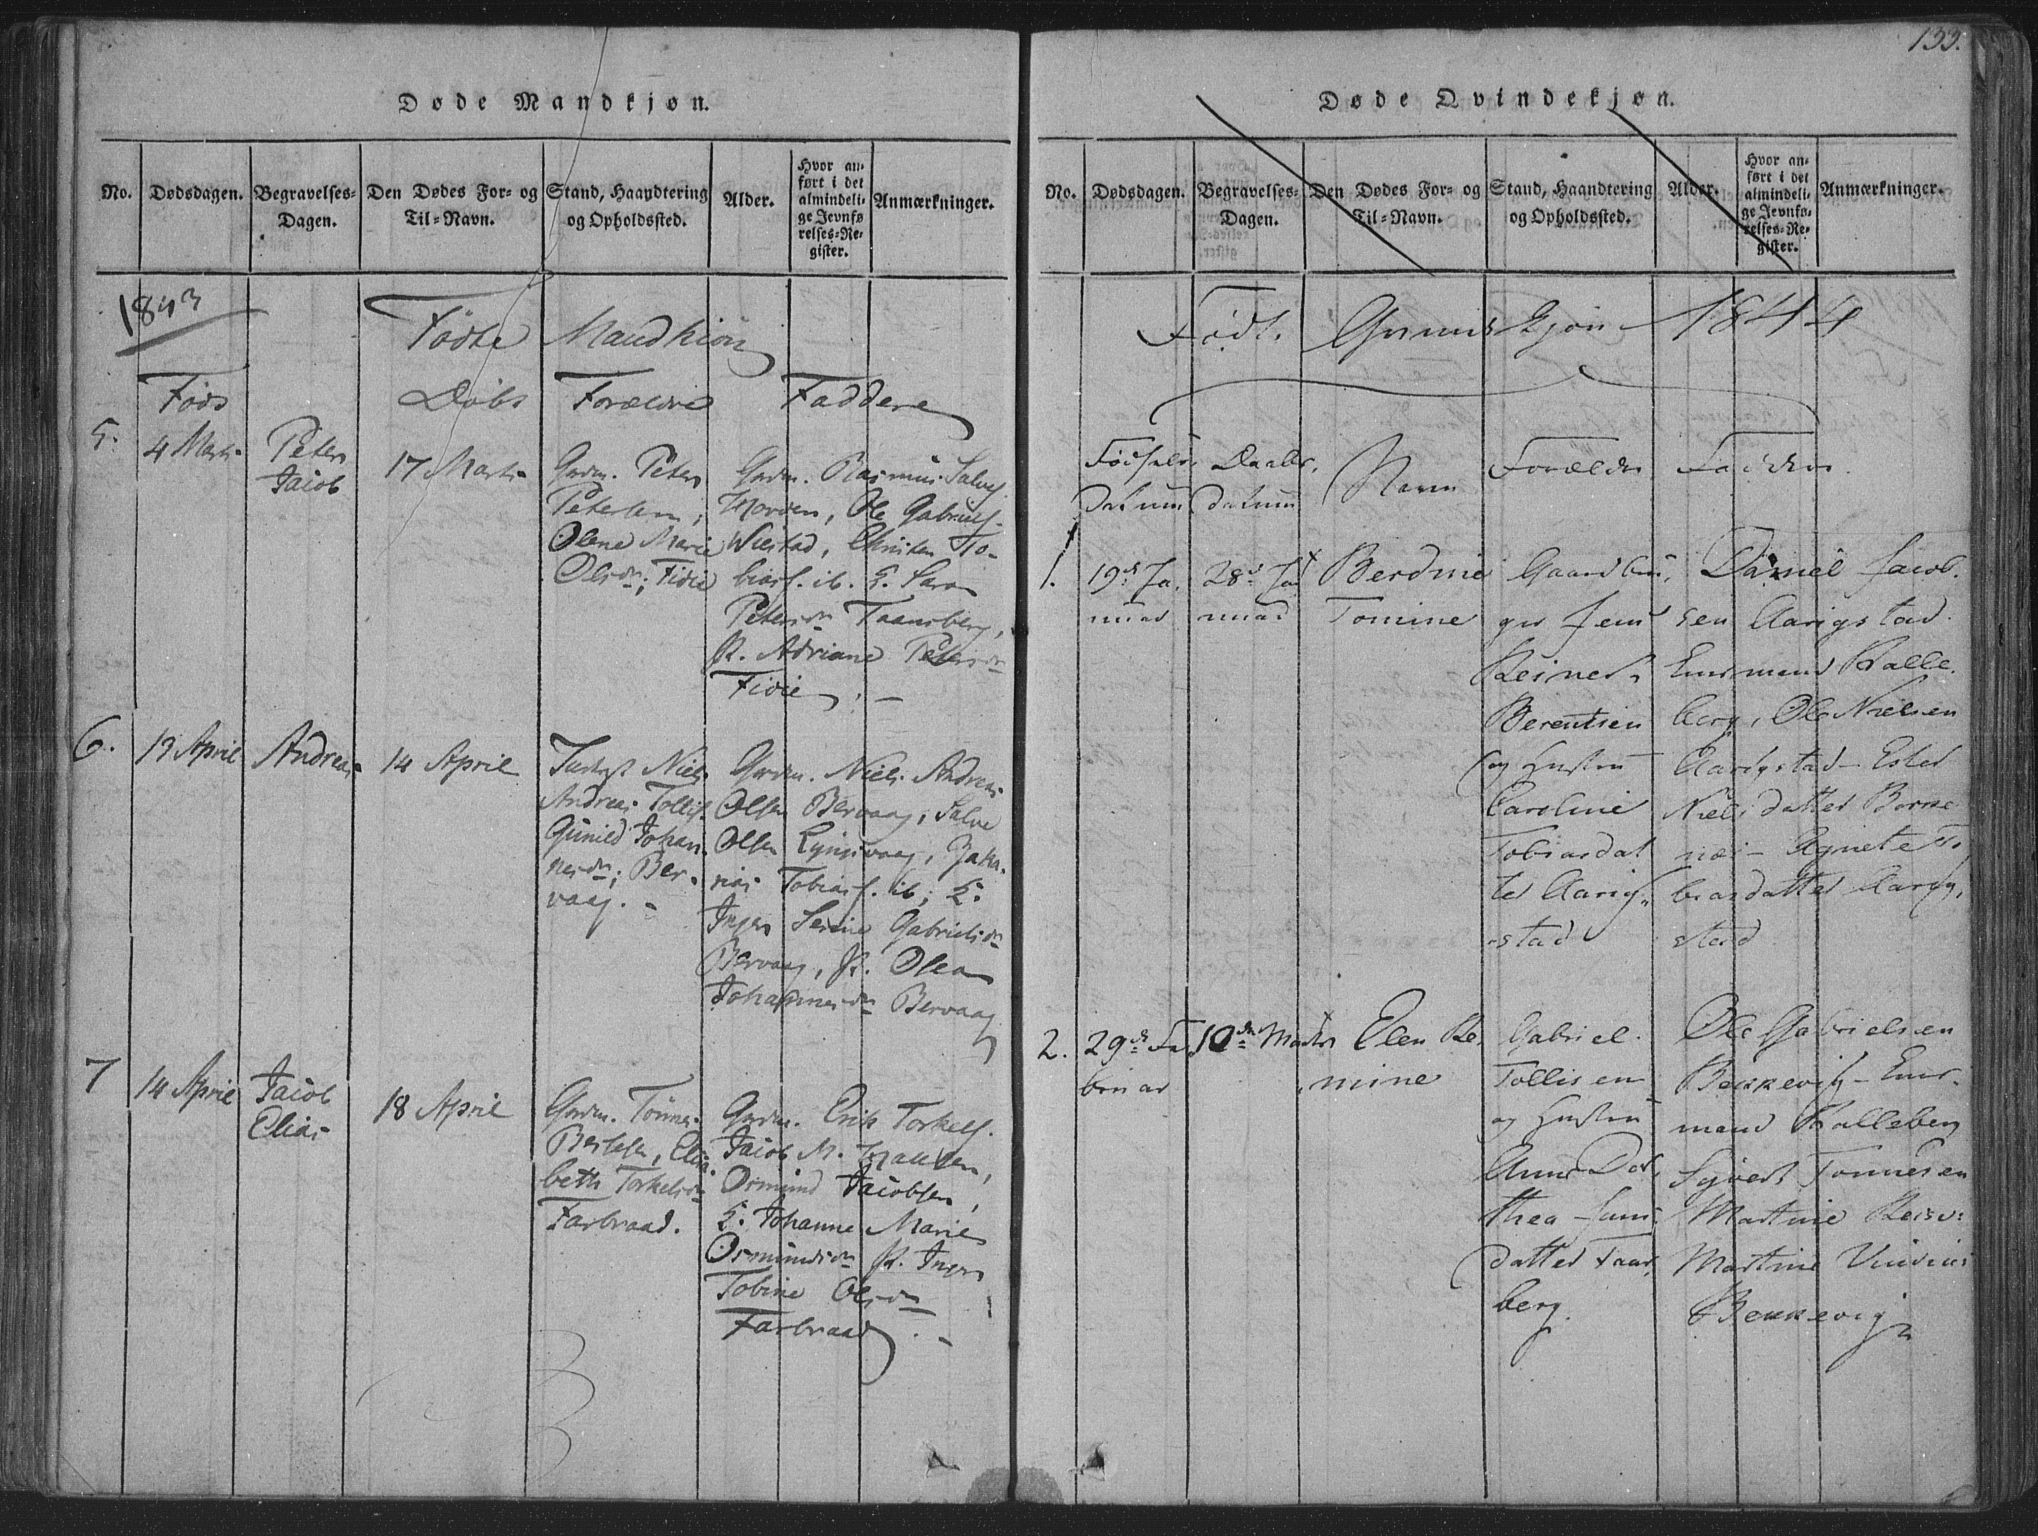 133.
Døde Mandkjøn.
No.
Dødsdagen.
Begravelses-
Dagen.
Den Dødes For- og
Til-Navn.
Stand, Haandtering
og Opholdssted.
Alder.
Hvor an-
ført i det
almindeli-
ge Jevnfø
relses-Re-
gister.
Anmærkninger.
1843
Fødte Mandkiøn
Føds
Døbs
Forældre
Faddere
5.
4 Marts
Peter
Jacob
17 Marts
Grdm. Peter
Petersen,
Olene Marie
Olsdr; Fidie
Grdm. Rasmus Salvs.
Ole Gabriels.
Wiestad, Christen To-
bias s. ib. E. Sara
Petersdr Taansberg,
P. Adriane Petersdr
Fidie
6.
12 April
Andreas
14 April
Niels
Andreas Tollifs.
Gunild Johan-
nesdr; Ber-
vaag.
Grdm. Niels Andreas
Olsen Bervaag, Salve
Olsen Lyngsvaag,
Tobias s. ib; E.
Inger Serine Gabrielsdr
Bervaag, P. Olea
Johannesdr Bervaag
7
14 April
Jacob
Elias
18 April
Grdm. Tønnes
Berlesen, Elisa-
beth Torkelsdr
Farbraad.
Grdm. Erik Torkels.
Jacob M. Hansen,
Osmund Jacobsen,
E. Johanne Marie
Osmundsdr P. Inger
Tobine Olsdr
Farbraad
Døde Qvindekjøn.
No.
Dødsdagen.
Begravelses-
Dagen.
Den Dødes For- og
Til-Navn.
Stand, Haandtering
og Opholdssted.
Alder.
Hvor an-
ført i det
almindeli-
ge Jevnfø-
relses-Re-
gister.
Anmærkninger.
Født Qvindekjøn 1844
Fødsels
Datum
Daabs
datum
Navn
Forældre
Faddere
1.
19de Ja-
nuar
28de Ja-
nuar
Berdine
Tomine
Gaardbru-
ger Jens
Reinert
Berentsen
og Hustru
Caroline
Tobiasdat
ter Aarig-
stad
Daniel Jacob-
sen Aarigstad
Enrmand Kalle-
berg, Ole Nielsen
Aarigstad - Ester
Nielsdatter Borse
næs - Agnete To
biasdatter Aarig-
stad
2.
29de Fe
bruar
10de Marts
Elen Re-
mine
Gabriel
Tollisen
og Hustru
Anne Dor-
thea Jens
datter Faar-
berg.
Ole Gabrielsen
Bekkevig - Enr-
mand Kalleberg
Syvert Tønnesen
Martine
Martine
Bekkevig